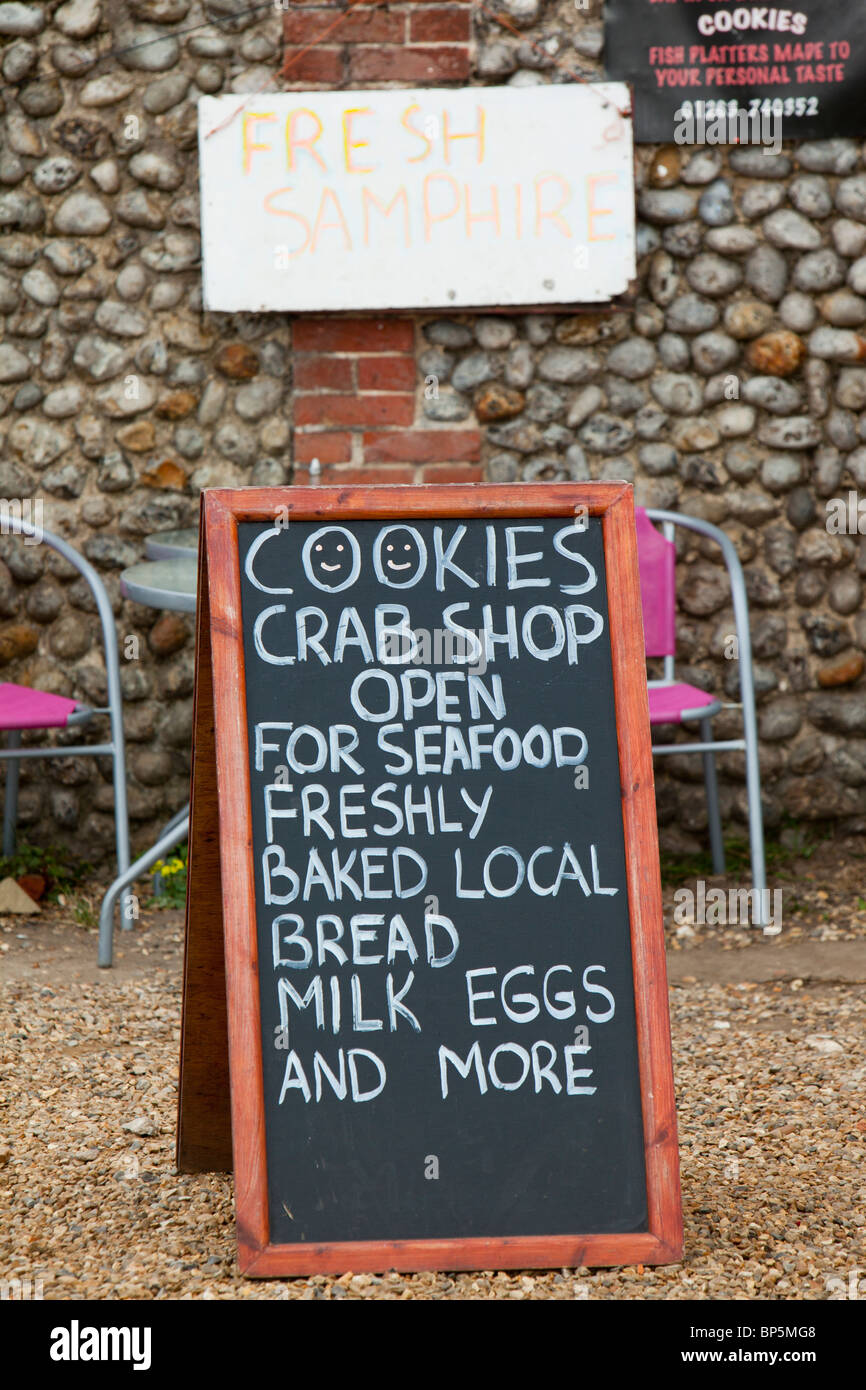 COOKIES
FISH PLATTERS MADE TO
YOUR PERSONAL TASTE
01263 740352
FRESH
SAMPHIRE
COOKIES
CRAB SHOP
OPEN
FOR SEAFOOD
FRESHLY
BAKED LOCAL
BREAD
MILK EGGS
AND MORE
alamy
Image ID: BP5MG8
www.alamy.com